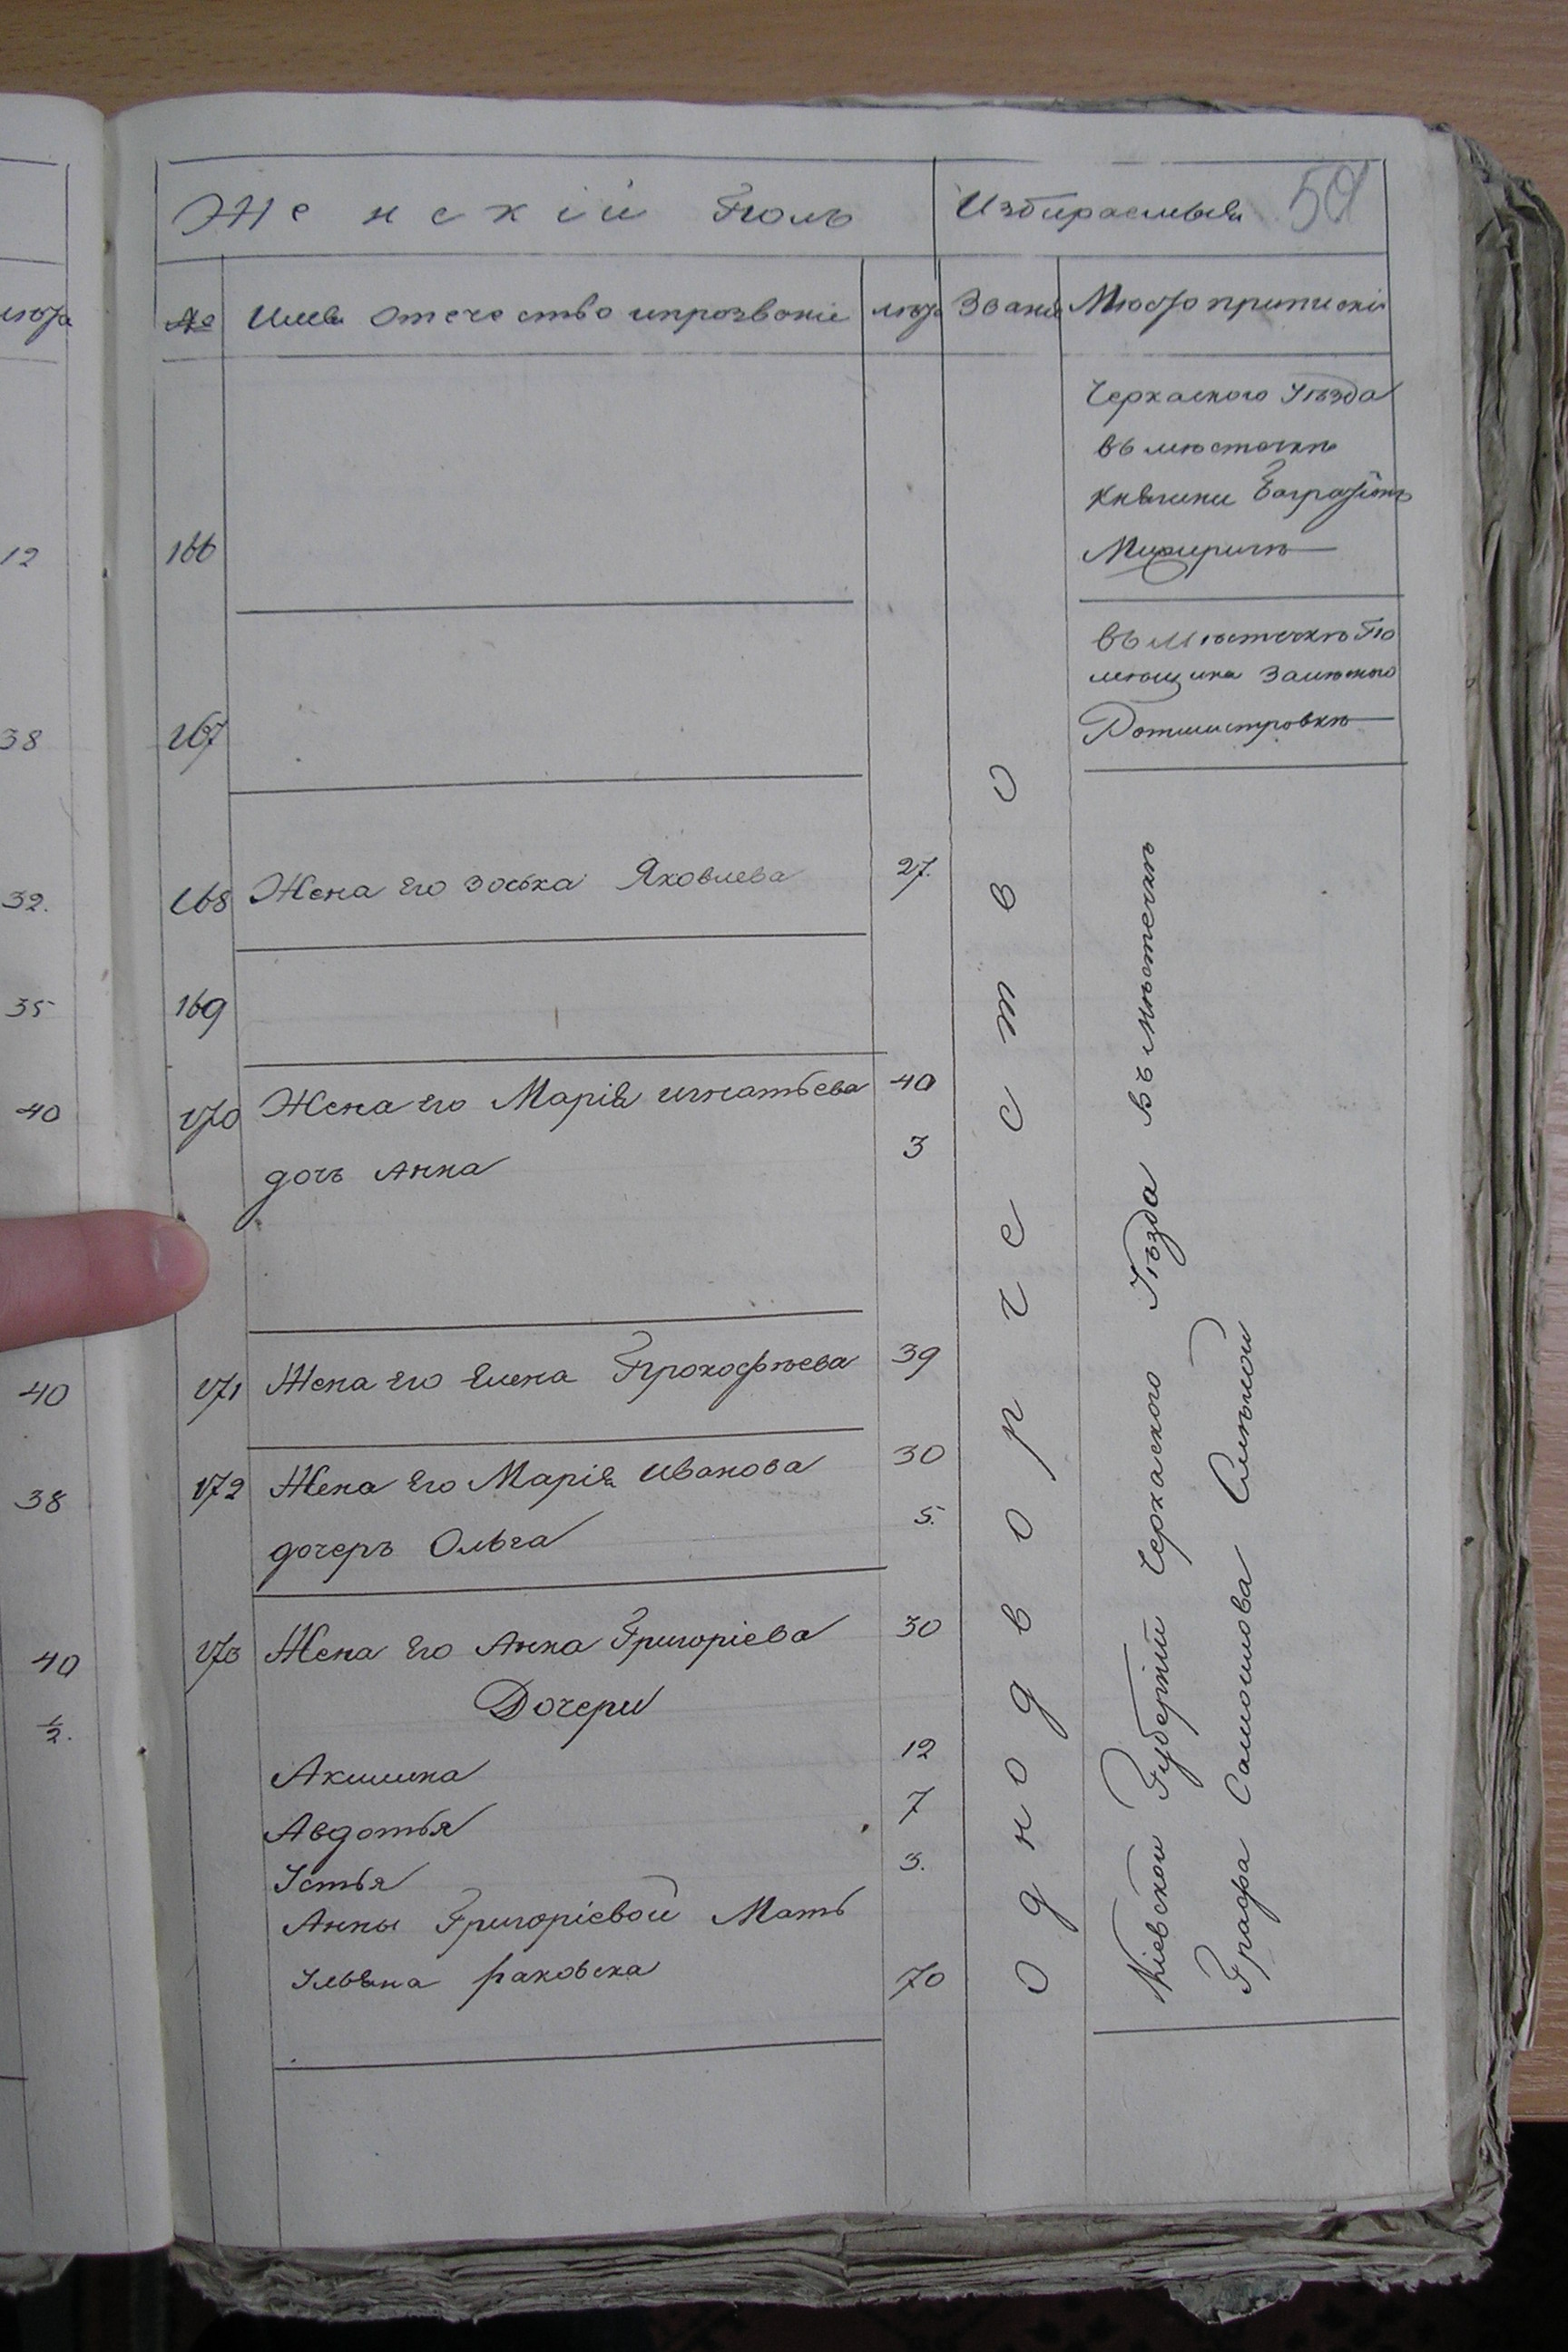 Женскій Полъ
Избираемыя
50
лѣта
№
Имя Отечество ипрозваніе
лѣта
Званія
Мѣсто приписки
Черкаского Уѣзда
въ местечкѣ
Княгини Багратіонъ
Мижиричѣ
12
166
въ Мѣстечкѣ По
мѣщика
Ротмистровкѣ
38
167
32.
168
Жена его зоська Яковлева
27.
35
169
40
170
Жена его Марія игнатьева
40
дочь Анна
3
40
171
Жена его Елена Прокофѣева
39
38
172
Жена его Марія иванова
30
дочеръ Ольга
5.
40
173
Жена его Анна Григоріева
30
1/2.
Дочери
Акилина
12
Авдотья
7
Устья
3.
Анны Григоріевой Мать
Ульяна раковска
70
Однодворчество
Кіевской Губерніи Черкаского Уѣзда въ мѣстечкѣ
Графа Самойлова Смѣлой